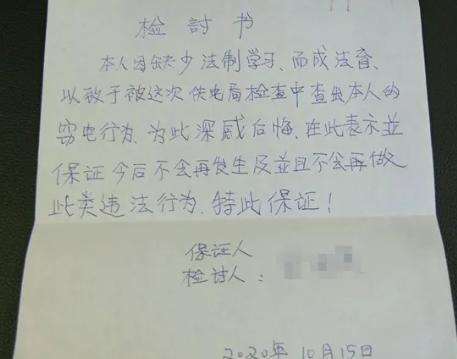 检討书
本人因缺少法制学习、而成法盲、
以致于被这次供电局检查中查出本人的
窃电行为、为此深感后悔、在此表示並
保证今后不会再发生及並且不会再做
此类违法行为、特此保证！
保证人
检讨人：
2020年10月15日